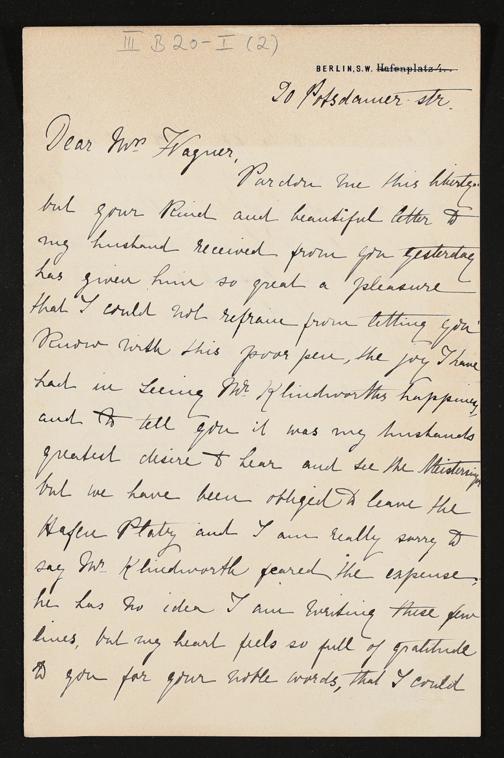 III B 20-I (2)
BERLIN, S.W. Hafenplatz 4.
20 Potsdamer str.
Dear Mrs Wagner,
Pardon me this liberty
but your kind and beautiful letter to
my husband received from you yesterday
has given him so great a pleasure
that I could not refrain from letting you
know with this poor pen, the joy I have
had in seeing Mr. Klindworths happiness,
and to tell you it was my husbands
greatest desire to hear and see the Meistersinger
but we have been obliged to leave the
Hafen Platz and I am really sorry to
say Mr. Klindworth feared the expense,
he has no idea I am writing these few
lines, but my heart feels so full of gratitude
to you for your noble words, that I could